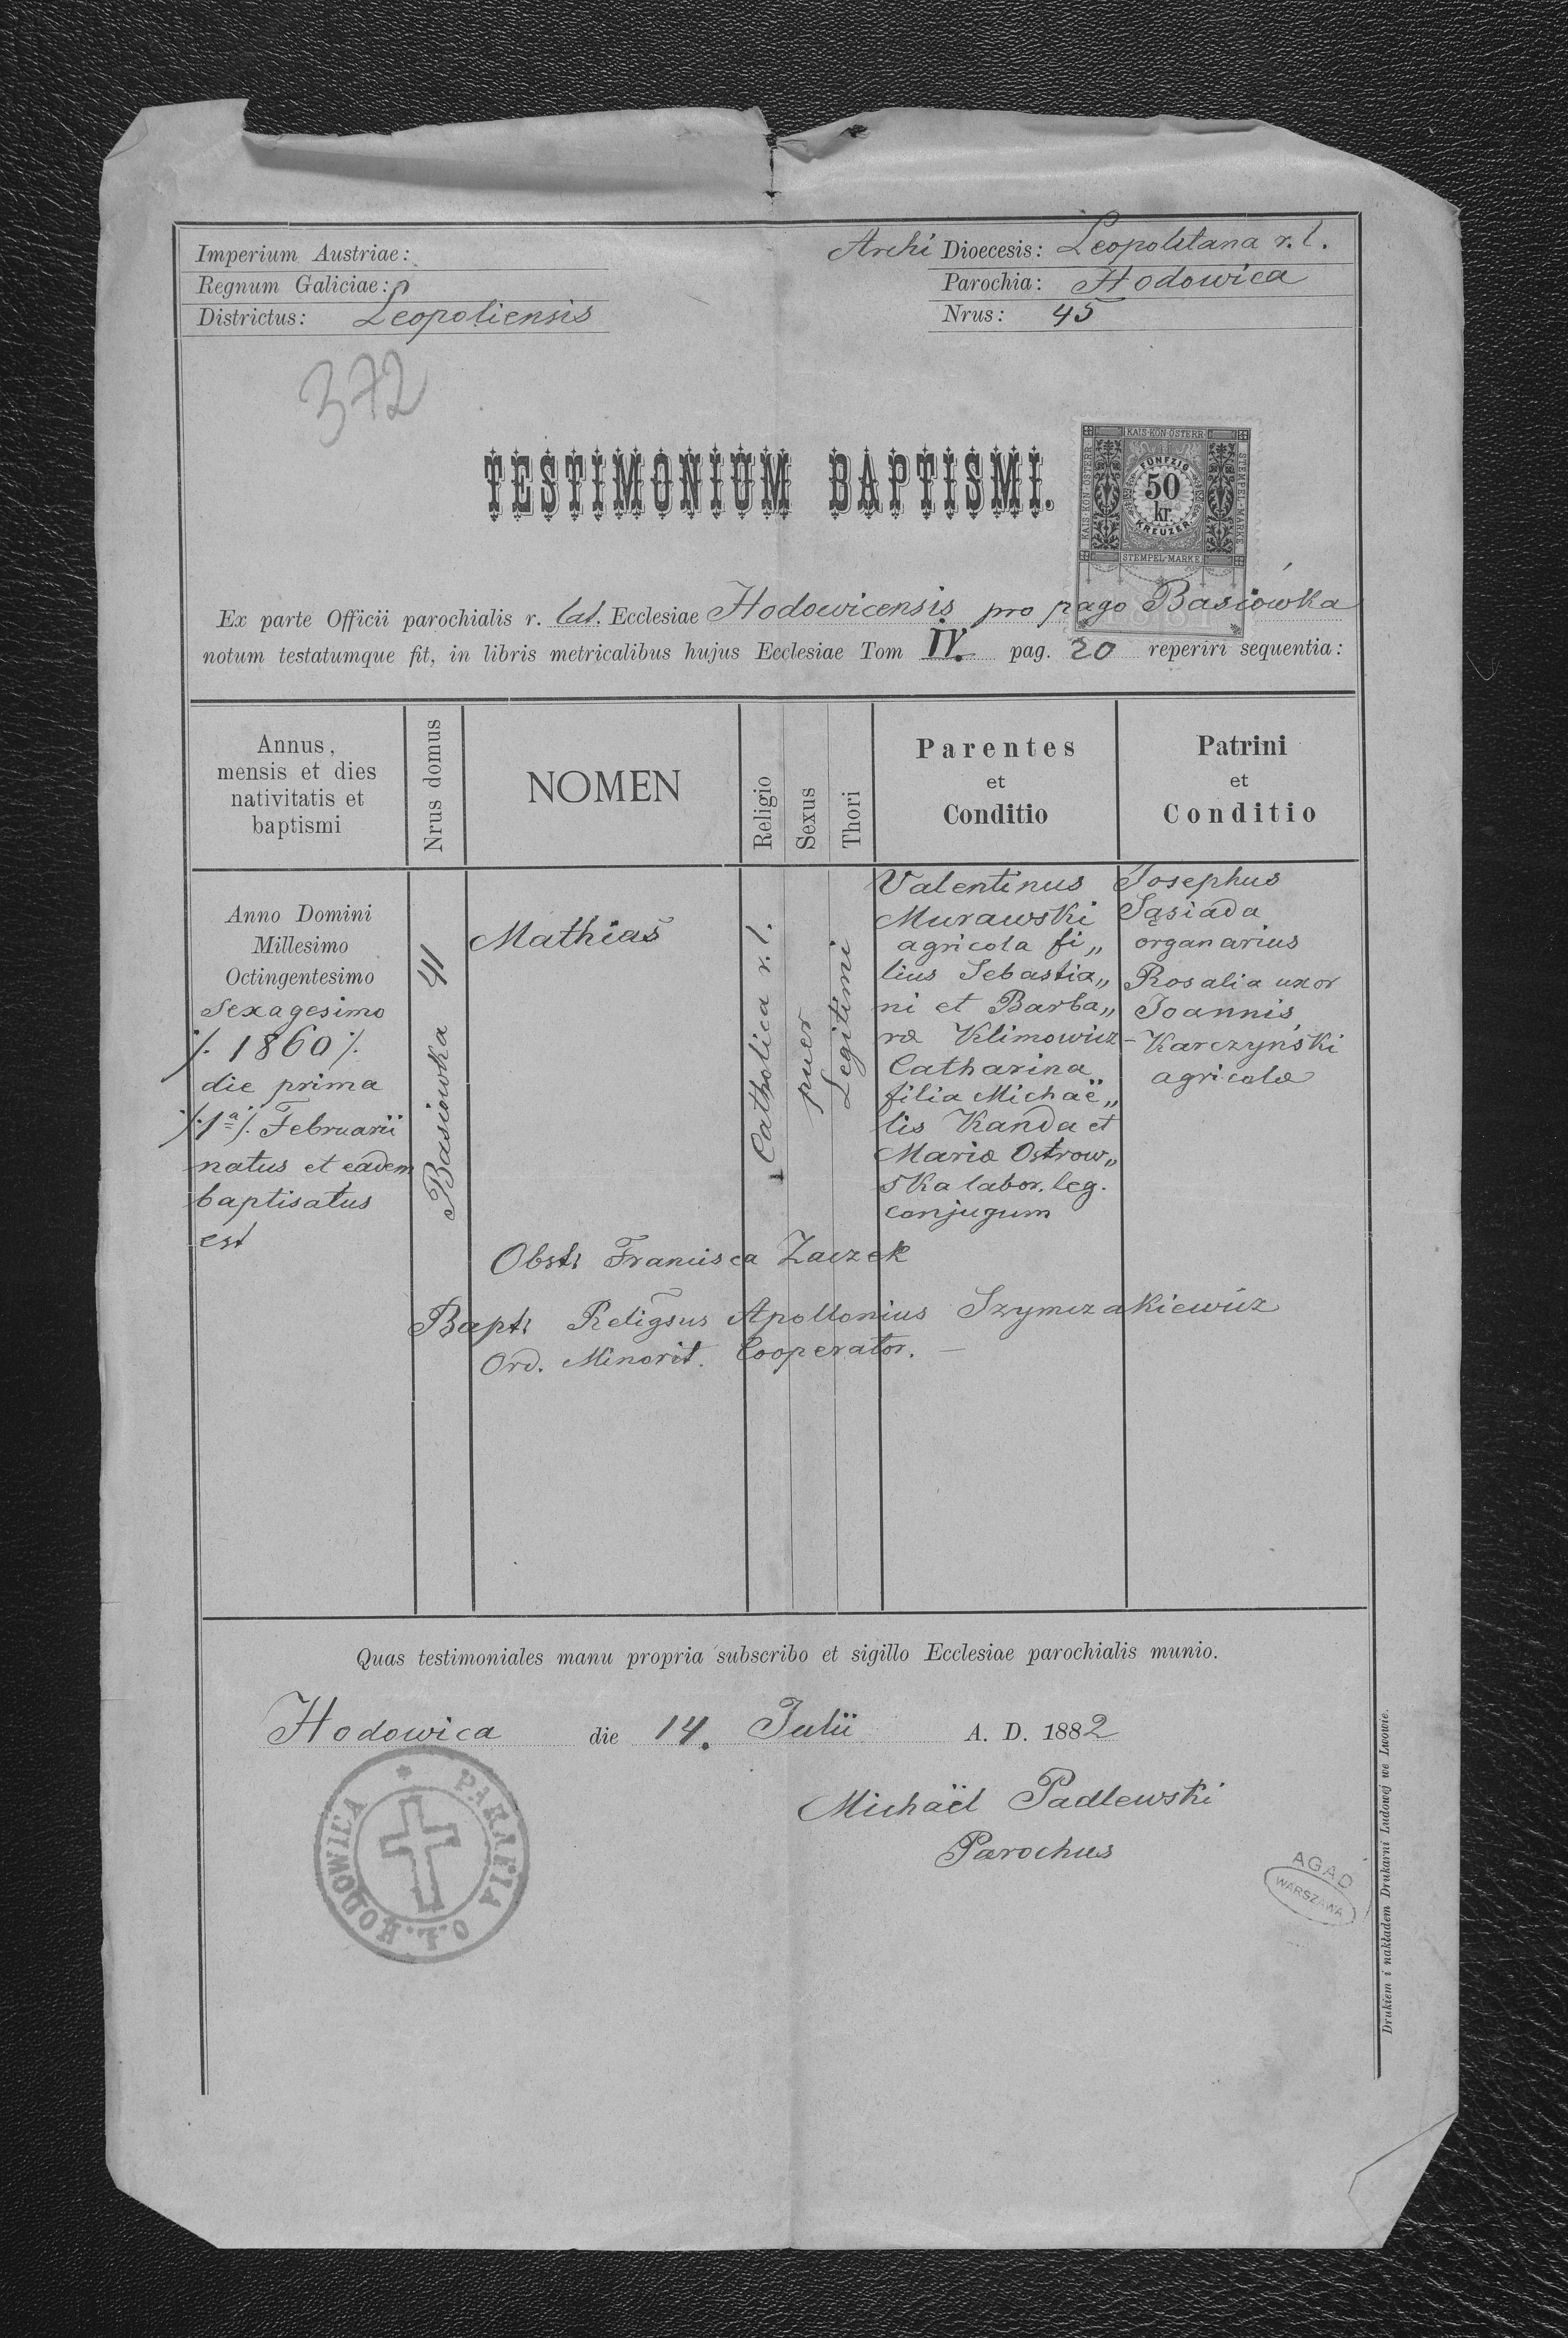 Imperium Austriae:
Regnum Galiciae:
Districtus: Leopoliensis
Archi Dioecesis: Leopolitana r. l.
Parochia: Hodowica
Nrus: 45
372
TESTIMONIUM BAPTISMI.
KAIS·KÖN·ÖSTERR
KAIS·KÖN·ÖSTERR
STEMPEL-MARKE
FÜNFZIG
50
kr.
KREUZER
STEMPEL-MARKE
1881
Ex parte Officii parochialis r. lat. Ecclesiae Hodowicensis pro pago Basiówka
notum testatumque fit, in libris metricalibus hujus Ecclesiae Tom IV. pag. 20 reperiri sequentia:
Annus,
mensis et dies
nativitatis et
baptismi
Nrus domus
NOMEN
Religio
Sexus
Thori
Parentes
et
Conditio
Patrini
et
Conditio
Anno Domini
Millesimo
Octingentesimo
Sexagesimo
/. 1860 /.
die prima
/. 1ª /. Februarii
natus et eadem
baptisatus
est
Basiowka 41
Mathias
Catholica r. l.
puer
Legitimi
Valentinus
Murawski
agricola fi„
lius Sebastia„
ni et Barba„
ræ Klimowicz
Catharina
filia Michaë„
lis Kanda et
Mariæ Ostrow„
ska labor. leg.
conjugum
Josephus
Sąsiada
organarius
Rosalia uxor
Joannis
Karczyński
agricolæ
Obstr Francisca Zaczek
Bapt: Religsus Apollonius Szymczakiewicz
Ord. Minorit. Cooperator. —
Quas testimoniales manu propria subscribo et sigillo Ecclesiae parochialis munio.
Hodowica die 14. Julii A. D. 1882
Michaël Padlewski
Parochus
PARAFIA O.Ł. HODOWICA
AGAD
WARSZAWA
Drukiem i nakładem Drukarni Ludowej we Lwowie.